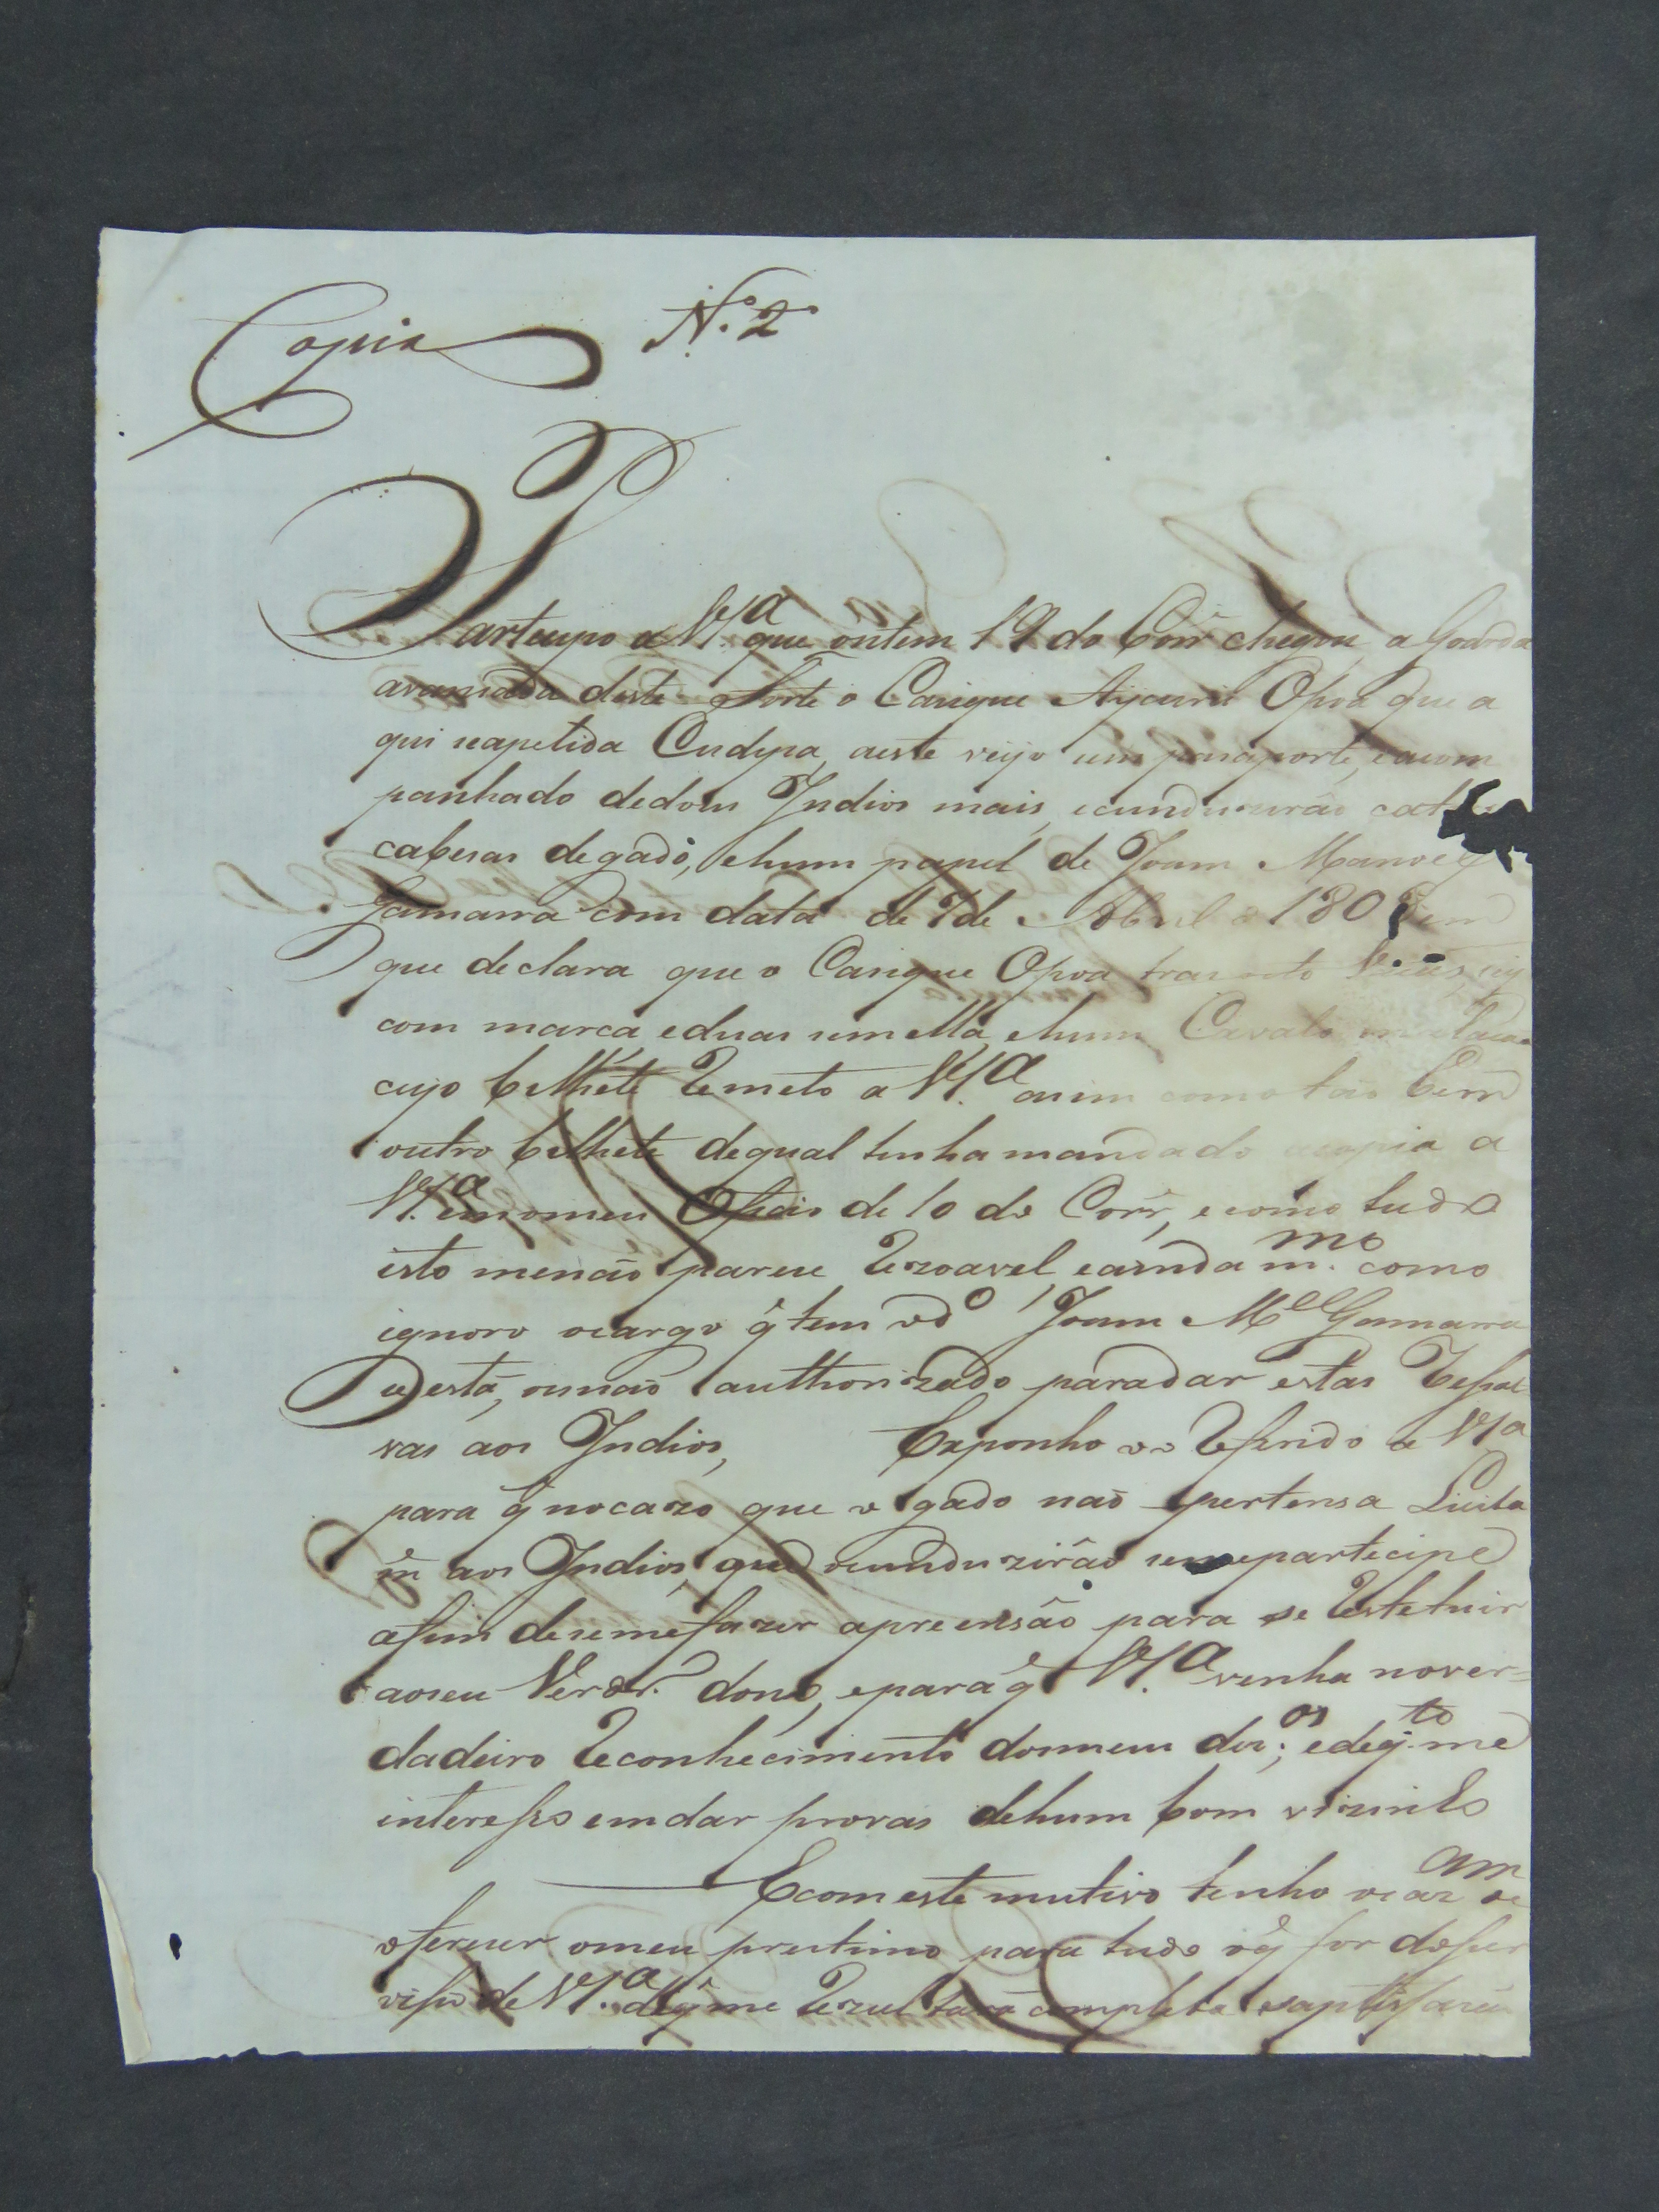 Copia N.º 2º
Partecipo a V.S.ª que ontem 19 do Corr.e chegou a Goarda
avansada deste Forte o Casique Ajcurú Opoá que a
qui seapelida Cudupa, aeste reijo um pasaporte, eacom
panhado dedous Indios mais, econduzirão
cabesas degado, ehum papel de Joam Manoel
Gamarra com data de 7 de Abril 180
que declara que o Casique Opoa tras oito
com marca eduas sem ella, ehum Cavalo
cujo bilhete Remeto a V.S.ª asim como tão bem
outro bilhete dequal tinha mandado acopia a
V.S.ª emomeu Oficio de 10 do Corr.e, ecomo tudo
isto menão parese Rezoavel, eainda m.mo como
ignoro ocargo q̃ tem od.º Joam M.el Gamarra
eseestá, ounaõ authorizado paradar estas Resal
vas aos Indios, Exponho oo Referido a V.S.ª
para q̃ nocazo que o gado naõ pertensa Licita
m.e aos Indios, que oconduzirão semepartecipe
afim desemefazer apreensão para se Restetuir
aoseu Verdr.º dono, eparaq̃ V.S.ª venha nover=
dadeiro Reconhecimento domeu der.os; edeq.to me
interesso emdar provas dehum bom vizinho
Ecom este mutivo tenho oca z.am de
oferecer omeu prestimo para tudo oq̃ for doser
viso de V.S.ª deq̃ me Rezultará completa saptisfasão